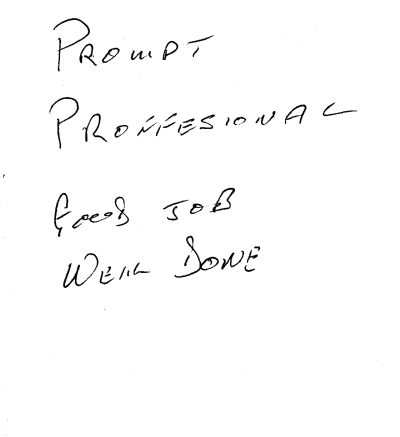 PROMPT
PROFFESIONAL
Good JOB
WELL DONE